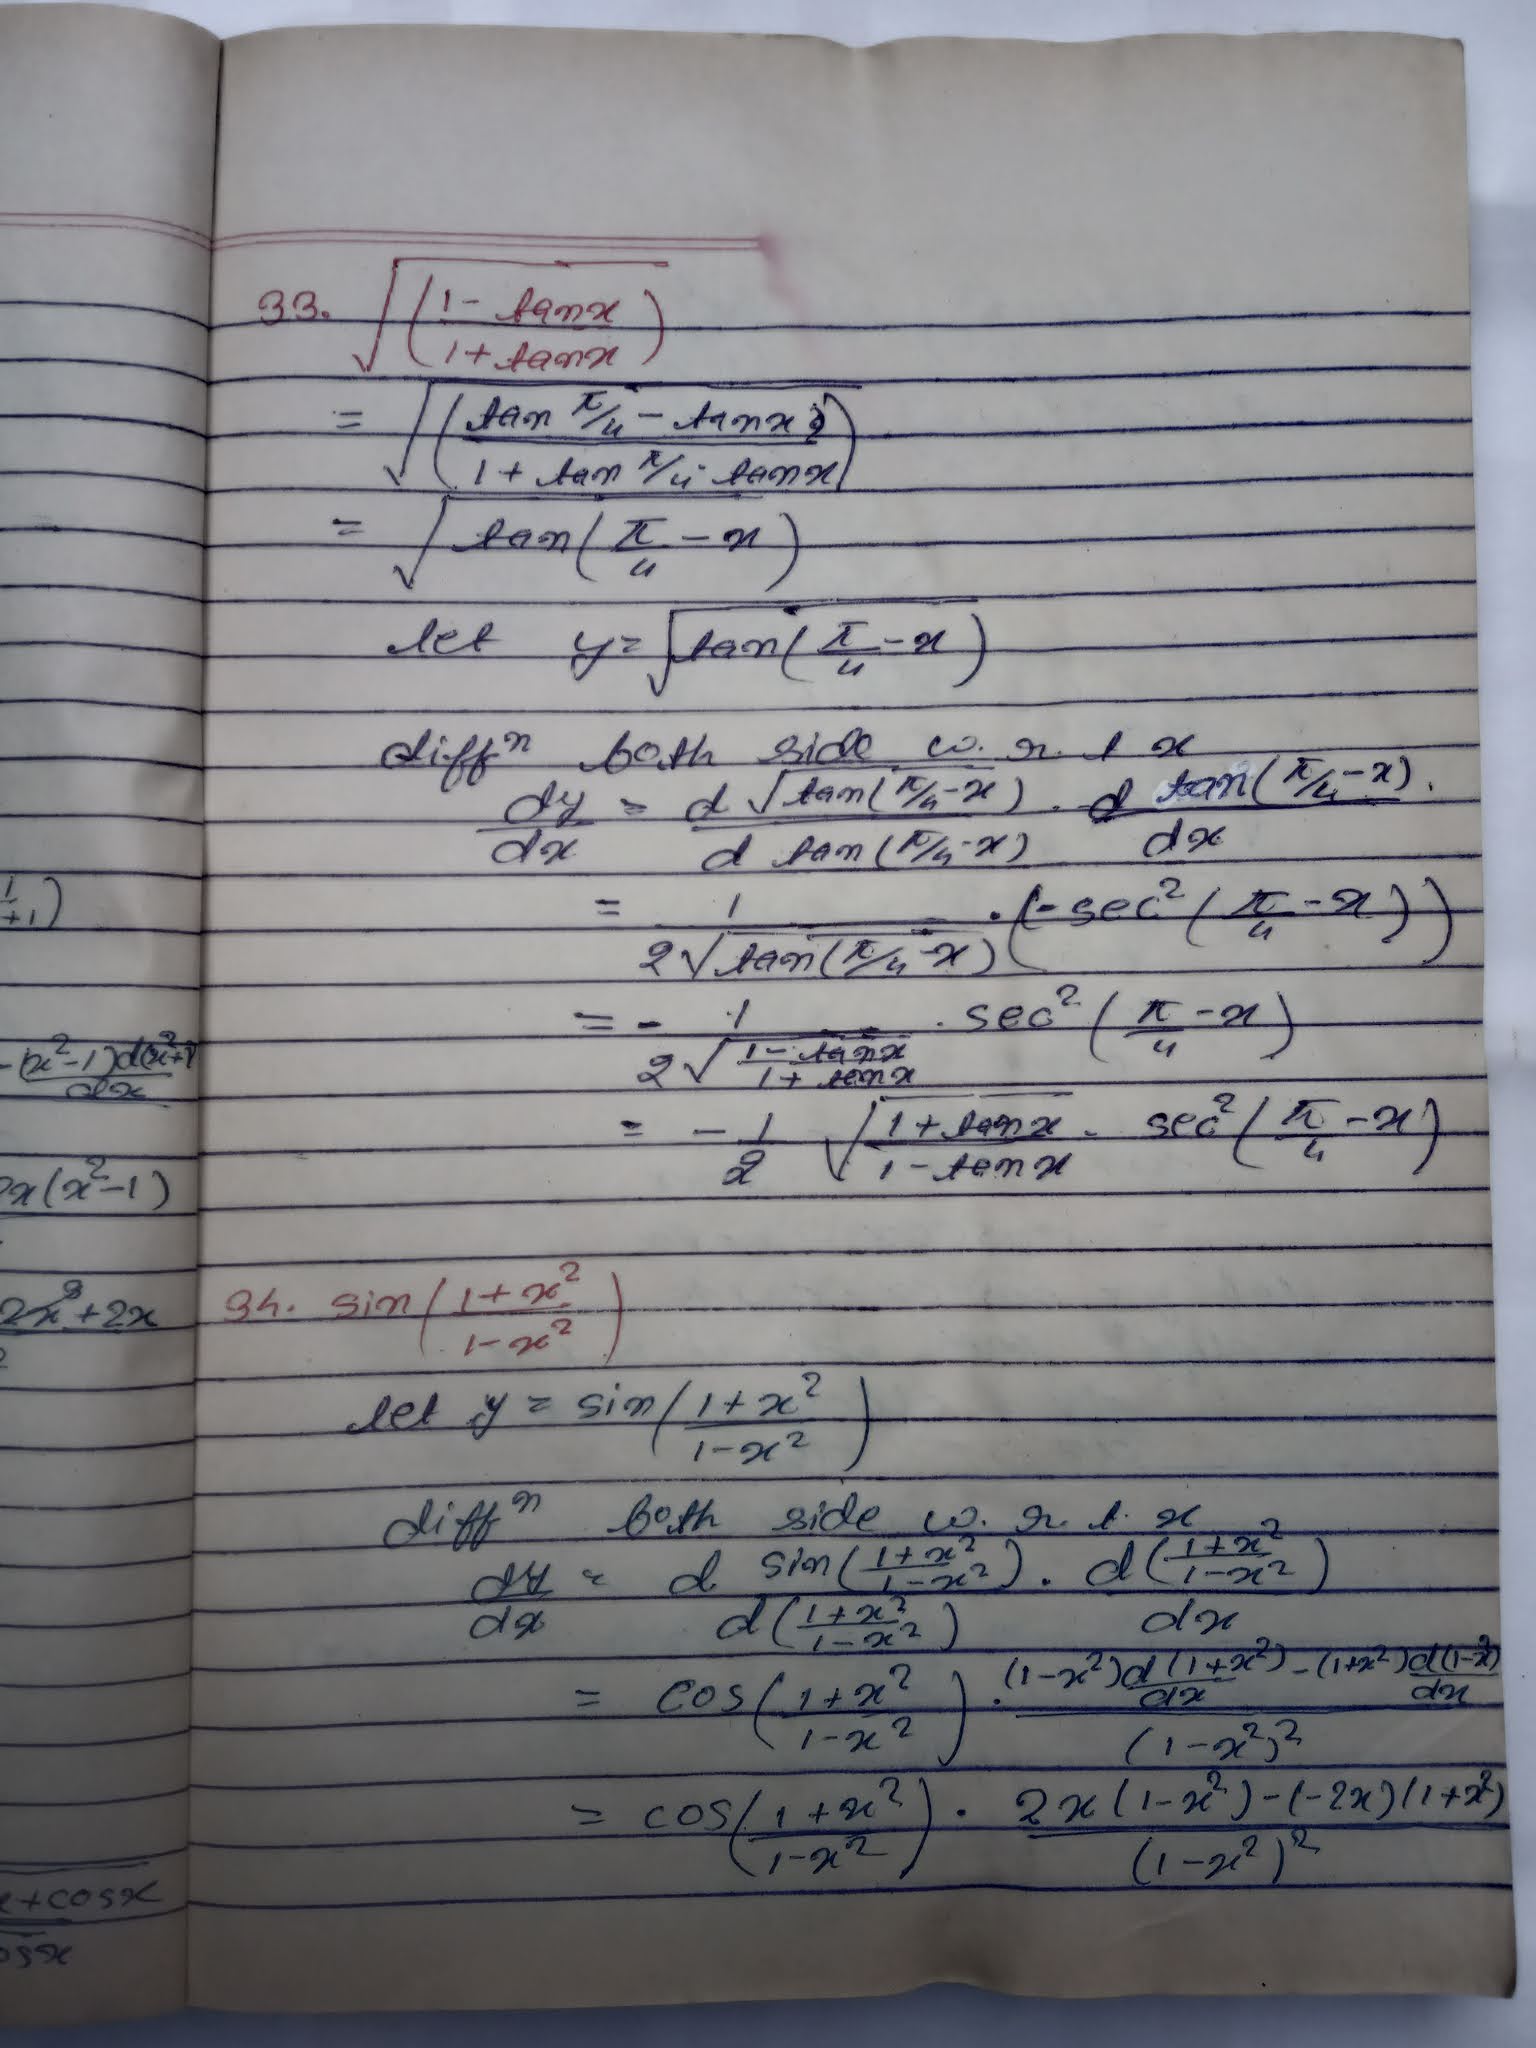 33. √((1 - tanx)/(1 + tanx))
= √((tan π/4 - tanx)/(1 + tan π/4 · tanx))
= √tan(π/4 - x)
let y = √tan(π/4 - x)
diffⁿ both side w. r. t x
dy/dx = d √tan(π/4 - x)/d tan(π/4 - x) · d tan(π/4 - x)/dx.
= 1/2√tan(π/4 - x) · (-sec²(π/4 - x))
= - 1/2√((1 - tanx)/(1 + tanx)) · sec²(π/4 - x)
= - 1/2 √((1 + tanx)/(1 - tanx)) · sec²(π/4 - x)
34. sin((1 + x²)/(1 - x²))
let y = sin((1 + x²)/(1 - x²))
diffⁿ both side w. r. t. x
dy/dx = d sin((1 + x²)/(1 - x²))/d((1 + x²)/(1 - x²)) · d((1 + x²)/(1 - x²))/dx
= cos((1 + x²)/(1 - x²)) · ((1 - x²) d(1 + x²)/dx - (1 + x²) d(1 - x²)/dx)/(1 - x²)²
= cos((1 + x²)/(1 - x²)) · (2x(1 - x²) - (-2x)(1 + x²))/(1 - x²)²
+1)
-(x²-1)d(x²+1
dx
x(x²-1)
2x³+2x
2
x+cosx
osx